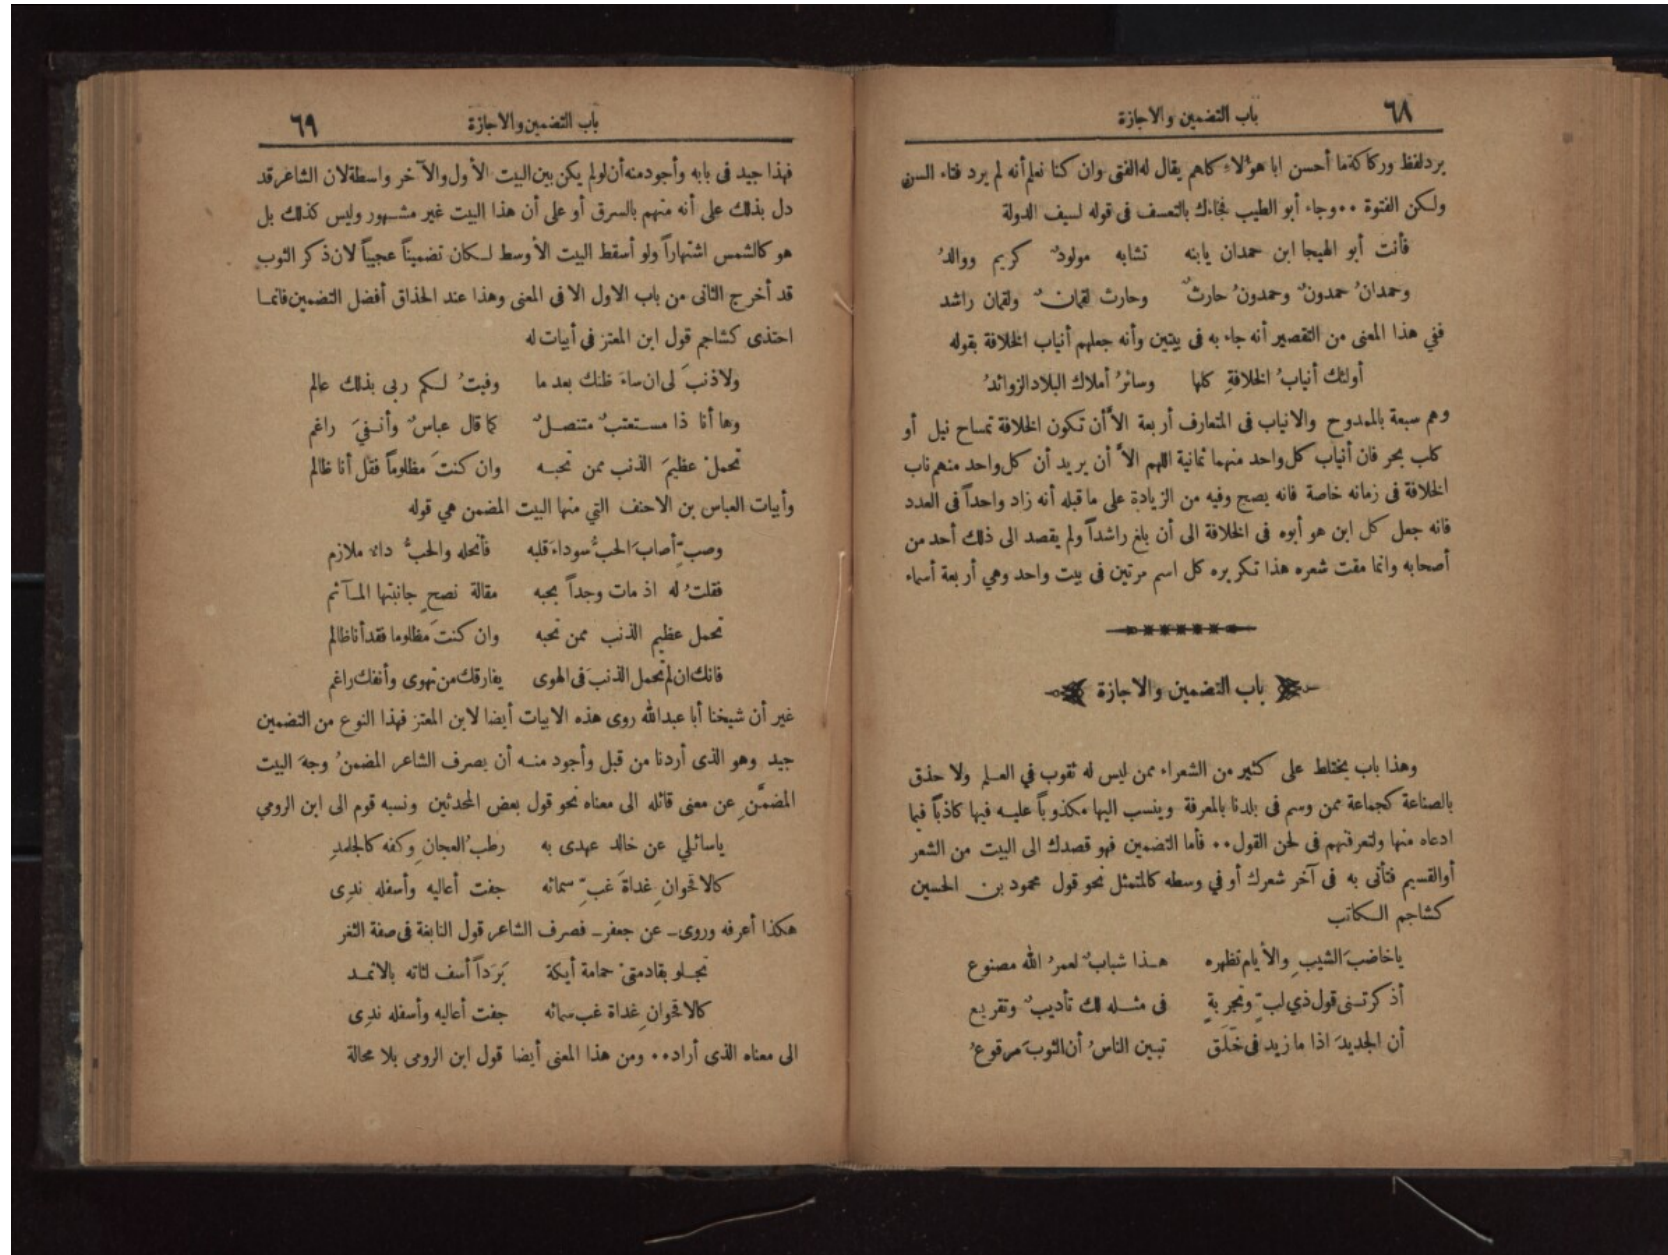 ٦٨
باب التضمين والاجازة
برد لفظ وركاكة ما أحسن ابا هؤلاء كلهم يقال له الفتى وان كنا نعلم أنه لم يرد فتاء السن
ولكن الفتوة ٠٠ وجاء أبو الطيب فجاءك بالتعسف فى قوله لسيف الدولة
فأنت أبو الهيجا ابن حمدان يابنه تشابه مولودٌ كريم ووالدُ
وحمدانُ حمدونٌ وحمدونُ حارثٌ وحارث لقمانٌ ولقمان راشد
ففي هذا المعنى من التقصير أنه جاء به فى بيتين وأنه جعلهم أنياب الخلافة بقوله
أولئك أنيابُ الخلافةِ كلها وسائرُ أملاك البلاد الزوائدُ
وهم سبعة بالممدوح والانياب فى المتعارف أربعة الاَّ أن تكون الخلافة تمساح نيل أو
كلب بحر فان أنياب كل واحد منهما ثمانية اللهم الاَّ أن يريد أن كل واحد منهم ناب
الخلافة فى زمانه خاصة فانه يصح وفيه من الزيادة على ما قبله أنه زاد واحداً فى العدد
فانه جعل كل ابن هو أبوه فى الخلافة الى أن بلغ راشداً ولم يقصد الى ذلك أحد من
أصحابه وانما مقت شعره هذا تكريره كل اسم مرتين فى بيت واحد وهي أربعة أسماء
باب التضمين والاجازة
وهذا باب يختلط على كثير من الشعراء ممن ليس له ثقوب في العلم ولا حذق
بالصناعة كجماعة ممن وسم فى بلدنا بالمعرفة وينسب اليها مكذوباً عليه فيها كاذباً فيما
ادعاه منها ولتعرفنهم فى لحن القول ٠٠ فأما التضمين فهو قصدك الى البيت من الشعر
أو القسيم فتأتى به فى آخر شعرك أو في وسطه كالمتمثل نحو قول محمود بن الحسين
كشاجم الكاتب
ياخاضبَ الشيبِ والأيام تظهره هذا شبابٌ لعمرُ الله مصنوع
أذكرتنى قول ذي لبٍّ وتجربةٍ فى مثله لك تأديبٌ وتقريع
أن الجديدَ اذا ما زيد فى خَلَق تبين الناسُ أن الثوبَ مرقوعُ
باب التضمين والاجازة
٦٩
فهذا جيد فى بابه وأجود منه أن لو لم يكن بين البيت الأول والآخر واسطة لان الشاعر قد
دل بذلك على أنه متهم بالسرق أو على أن هذا البيت غير مشهور وليس كذلك بل
هو كالشمس اشتهاراً ولو أسقط البيت الأوسط لكان تضميناً عجيباً لان ذكر الثوب
قد أخرج الثانى من باب الاول الا فى المعنى وهذا عند الحذاق أفضل التضمين فانما
احتذى كشاجم قول ابن المعتز فى أبيات له
ولا ذنبَ لى ان ساءَ ظنك بعد ما وفيتُ لكم ربى بذلك عالم
وها أنا ذا مستعتبٌ متنصلٌ كما قال عباسٌ وأنفيَ راغم
تحملْ عظيمَ الذنب ممن تحبه وان كنتَ مظلوماً فقل أنا ظالم
وأبيات العباس بن الاحنف التي منها البيت المضمن هي قوله
وصبٍّ أصابَ الحبُّ سوداءَ قلبه فأنحله والحبُّ داء ملازم
فقلتُ له اذ مات وجداً بحبه مقالة نصحٍ جانبتها المآثم
تحمل عظيم الذنب ممن تحبه وان كنتَ مظلوما فقد أنا ظالم
فانك ان لم تحمل الذنبَ فى الهوى يفارقك من تهوى وأنفك راغم
غير أن شيخنا أبا عبد الله روى هذه الابيات أيضا لابن المعتز فهذا النوع من التضمين
جيد وهو الذى أردنا من قبل وأجود منه أن يصرف الشاعر المضمنُ وجهَ البيت
المضمَّنِ عن معنى قائله الى معناه نحو قول بعض المحدثين ونسبه قوم الى ابن الرومي
ياسائلي عن خالد عهدى به رطبُ العجانِ وكفه كالجلمدِ
كالاقحوانِ غداةَ غبِّ سمائه جفت أعاليه وأسفله ندِى
هكذا أعرفه وروى ـ عن جعفر ـ فصرف الشاعر قول النابغة فى صفة الثغر
تجلو بقادمتيْ حمامة أيكة بَرَداً أسف لثاته بالاثمد
كالاقحوانِ غداة غب سمائه جفت أعاليه وأسفله ندِى
الى معناه الذى أراد ٠٠ ومن هذا المعنى أيضا قول ابن الرومى بلا محالة